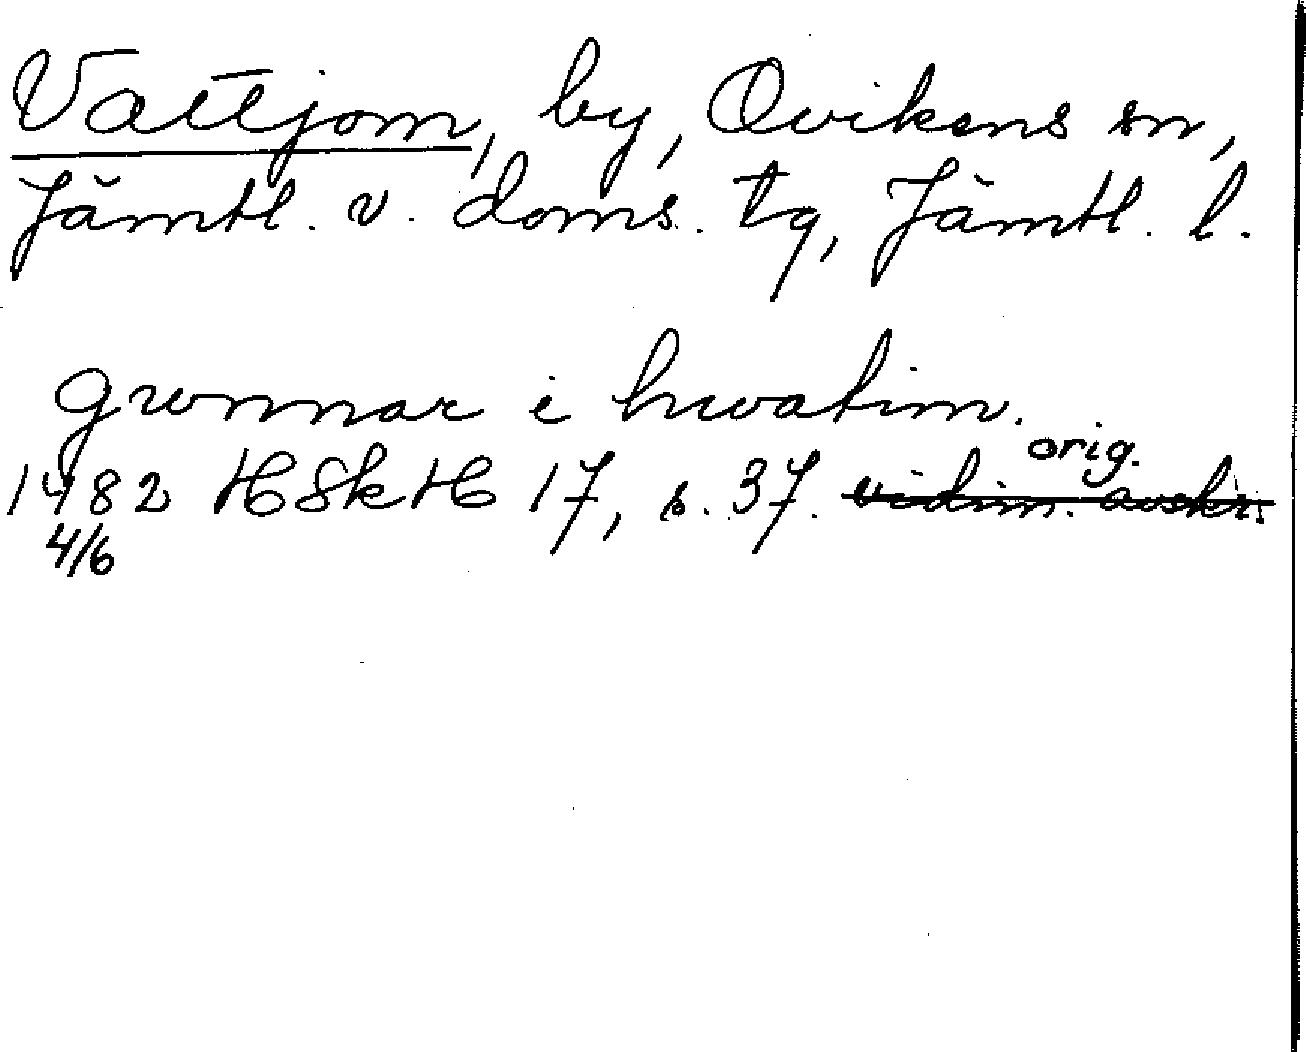 Vattjom, by, Ovikens sn,
Jämtl. v. doms. tg, Jämtl. l.
gunnar i hwatim.
orig.
1482 HSkH 17, s. 37. vidim. avskr.
4/6